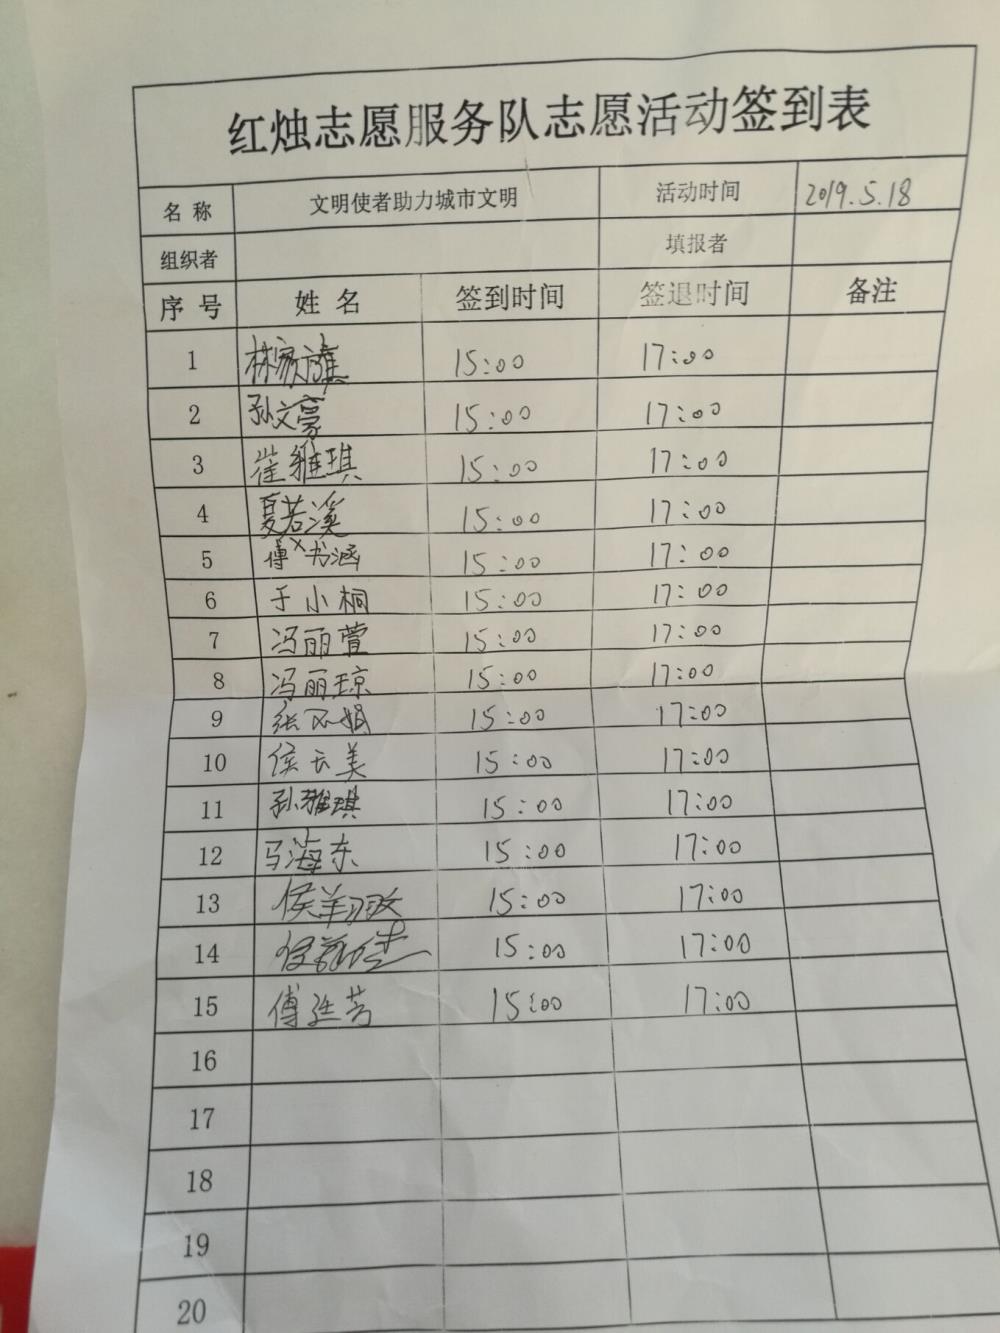 红烛志愿服务队志愿活动签到表
名 称 文明使者助力城市文明 活动时间 2019.5.18
组织者 填报者
序 号 姓 名 签到时间 签退时间 备注
1 林家旗 15:00 17:00
2 孙文豪 15:00 17:00
3 崔雅琪 15:00 17:00
4 夏若溪 15:00 17:00
5 傅书涵 15:00 17:00
6 于小桐 15:00 17:00
7 冯丽萱 15:00 17:00
8 冯丽琼 15:00 17:00
9 张 娟 15:00 17:00
10 侯云美 15:00 17:00
11 孙雅琪 15:00 17:00
12 马海东 15:00 17:00
13 侯 15:00 17:00
14 15:00 17:00
15 傅延芳 15:00 17:00
16
17
18
19
20